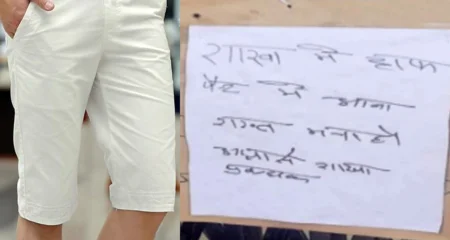 शाखा में हाफ
पैंट में आना
शख्त मना है
आज्ञा से शाखा
प्रबंधक